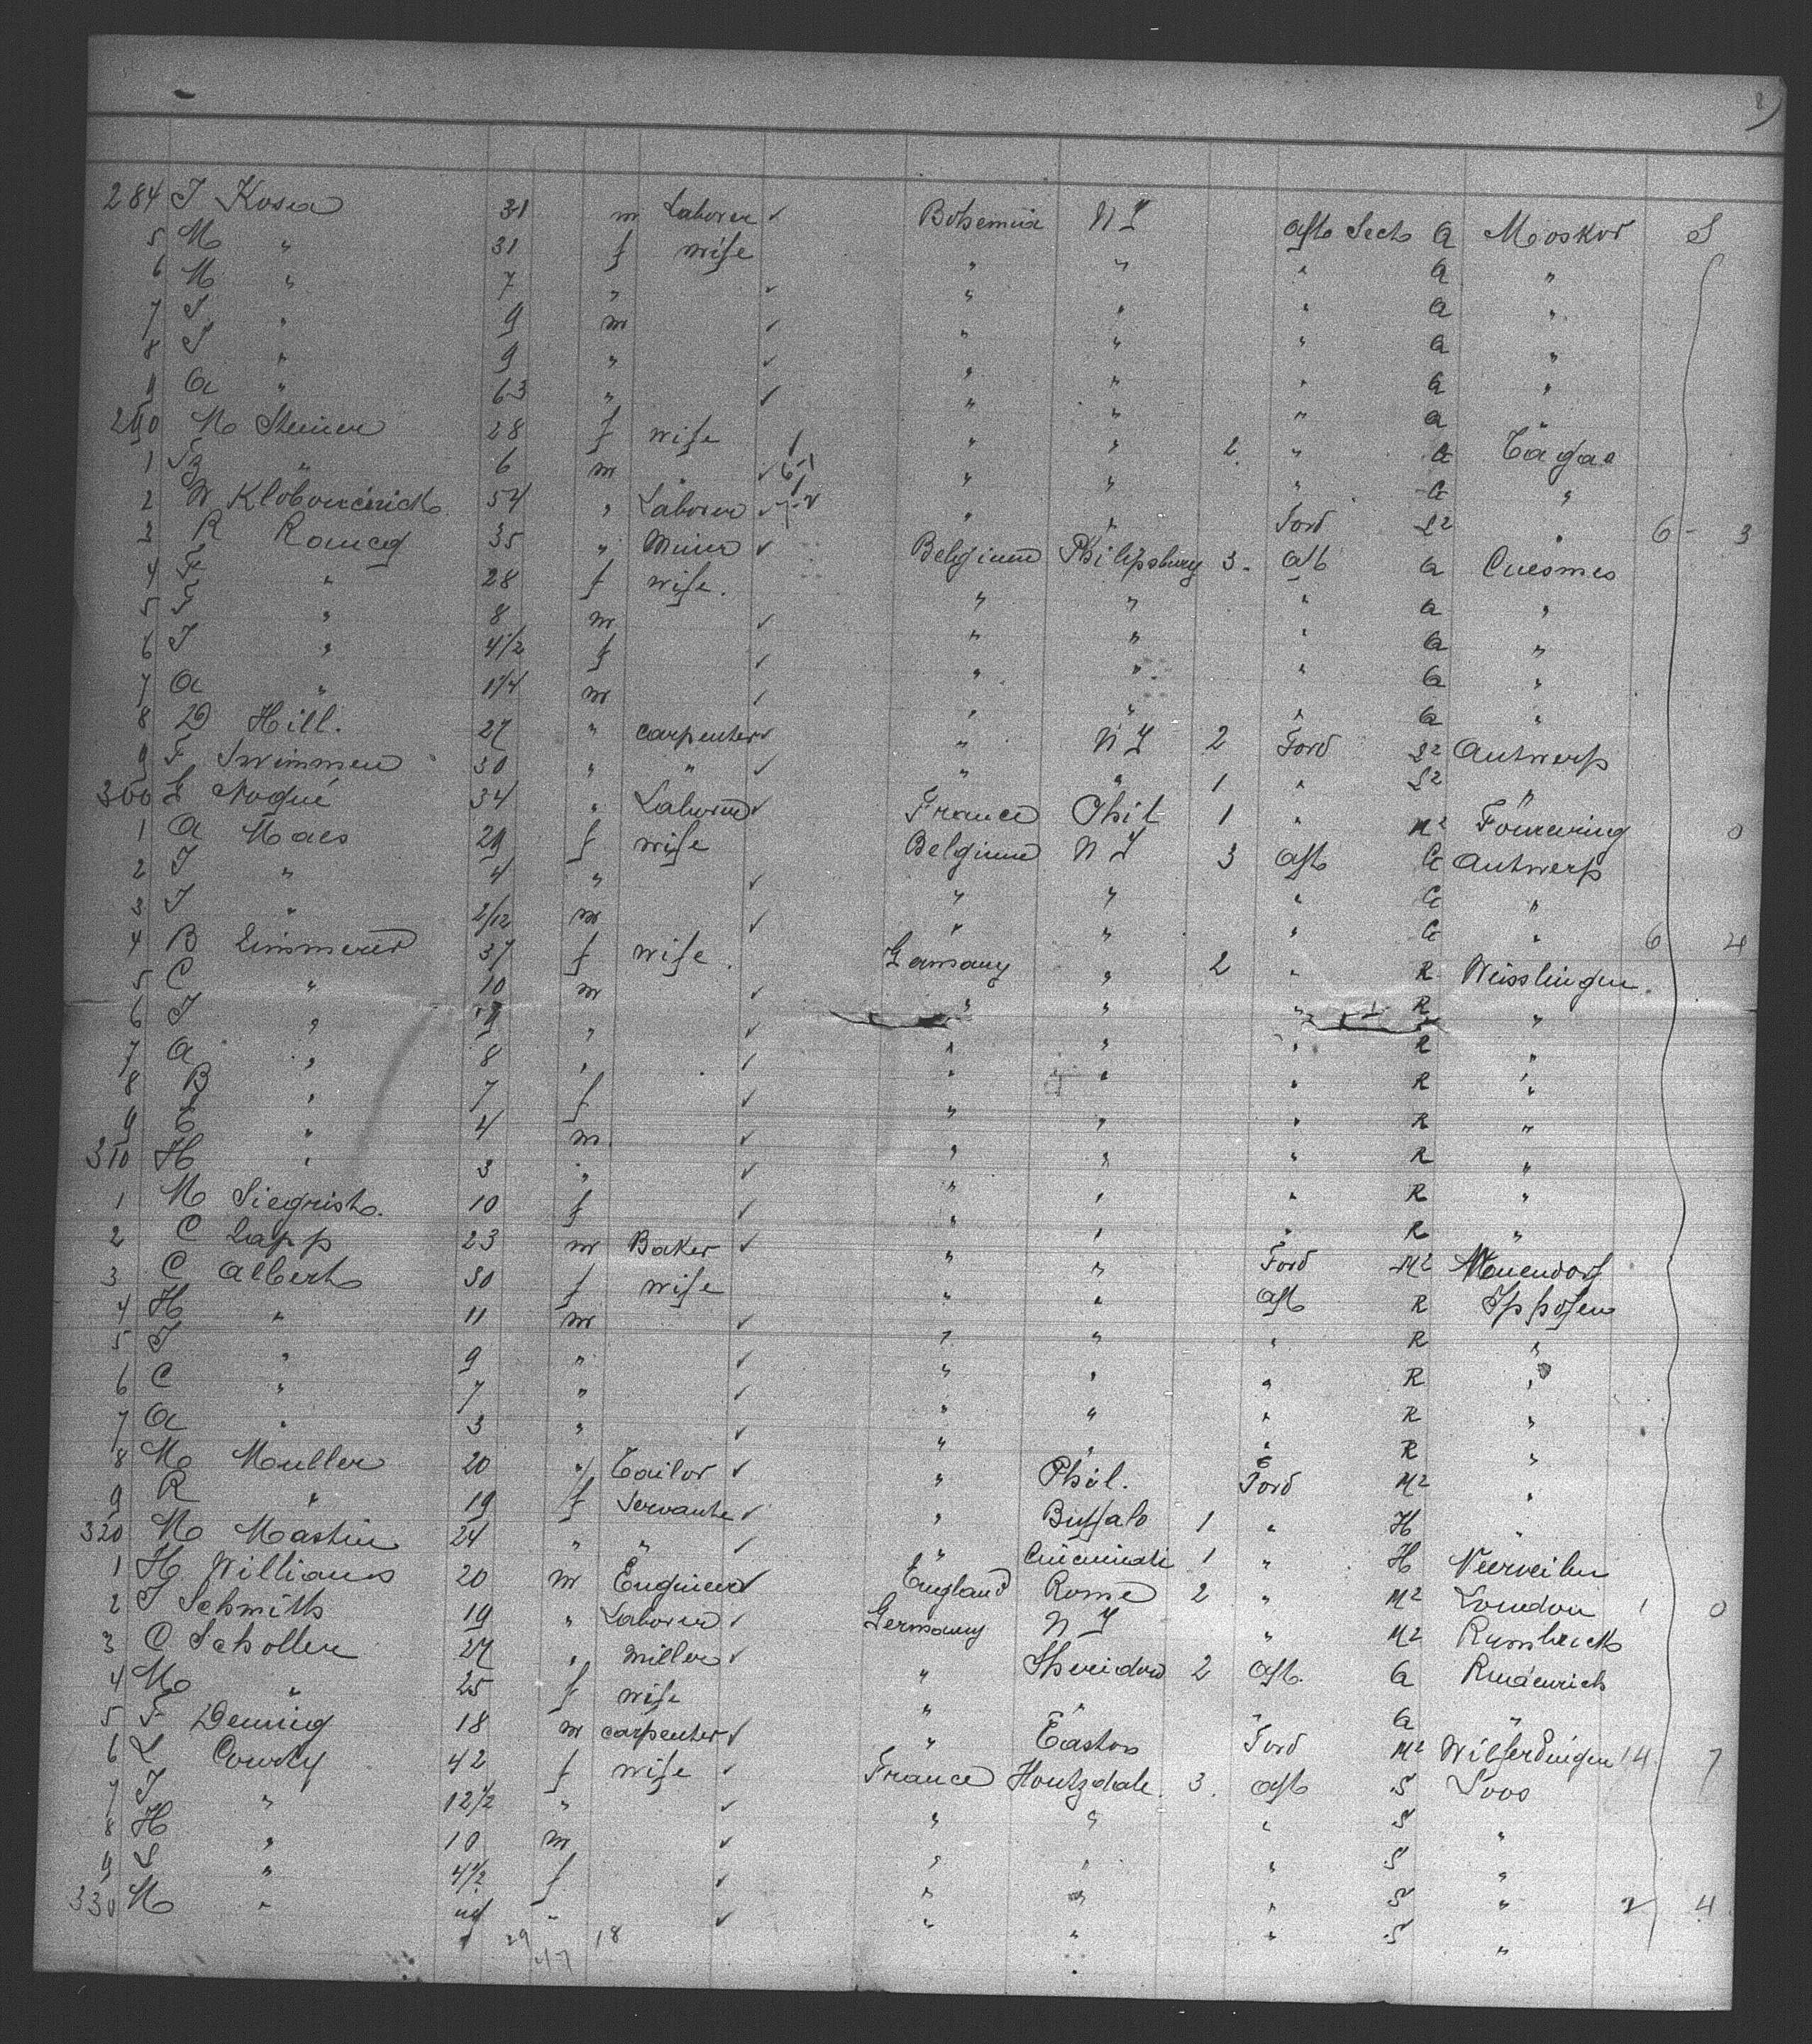 284 J Kosea 31 m Laborer ✓ Bohemia N Y aft Sect a Moskov S
5 M " 31 f wife " " " a "
6 M " 7 " ✓ " " " a "
7 J " 9 m ✓ " " " a "
8 J " 9 " ✓ " " " a "
9 a " 63 " ✓ " " " a "
290 M Steiner 28 f wife 1 " " 2 " a
1 " 6 m ✓ 6-1 " " " a "
2 W 54 " Laborer ✓ " " Ford S2 " 6 - 3
3 R 35 " Miner ✓ Belgium Philipsburg 3 aft a Cuesmes
4 F " 28 f wife. " " " a "
5 F " 8 m ✓ " " " a "
6 J " 4 1/2 f ✓ " " " a "
7 a " 1 1/4 m ✓ " " " a "
8 D Hill. 27 " carpenter ✓ " N Y 2 Ford S2 Antwerp
9 F Swimmen 30 " " ✓ " " 1 " S2 "
300 L Nogué 34 " Laborer ✓ France Phil 1 " M2 0
1 a Maes 29 f wife Belgium N Y 3 aft a Antwerp
2 J " 4 " ✓ " " " a "
3 J " 2/12 m ✓ " " " a " 6 4
4 B Zimmerer 37 f wife. Germany " 2 " R Weisslingen.
5 C " 10 m ✓ " " " R "
6 J " 9 " ✓ " " " R "
7 a " 8 " ✓ " " " R "
8 B " 7 f ✓ " " " R "
9 E " 4 m ✓ " " " R "
310 H " 3 " ✓ " " " R "
1 M Siegrist. 10 f ✓ " " " R "
2 C Lapp 23 m Baker ✓ " " Ford M2
3 C Albert 30 f wife " " aft R Ipphofen
4 H " 11 m ✓ " " " R "
5 J " 9 " ✓ " " " R "
6 C " 7 " ✓ " " " R "
7 a " 3 " ✓ " " " R "
8 M Muller 20 " Tailor ✓ " Phil. Ford M2 "
9 R " 19 f Servant ✓ " Buffalo 1 " H "
320 M Mastin 24 " " ✓ " Cincinnati 1 " H
1 H Williams 20 m Engineer ✓ England Rome 2 " M2 London 1 0
2 J Schmith 19 " Laborer ✓ Germany N Y " M2 Rumbeck
3 C Scholler 27 " Miller ✓ " Sheridan 2 aft. a
4 M " 25 f wife " " " a "
5 F Dennig 18 m carpenter ✓ " Easton Ford M2 Wilferdingen 14 7
6 L Courty 42 f wife ✓ France Houtzdale 3. aft S Loos
7 J " 12 1/2 " ✓ " " " S "
8 H " 10 m ✓ " " " S "
9 L " 4 1/2 f ✓ " " " S " 2 4
330 M " " ✓ " " " S "
29 18
47